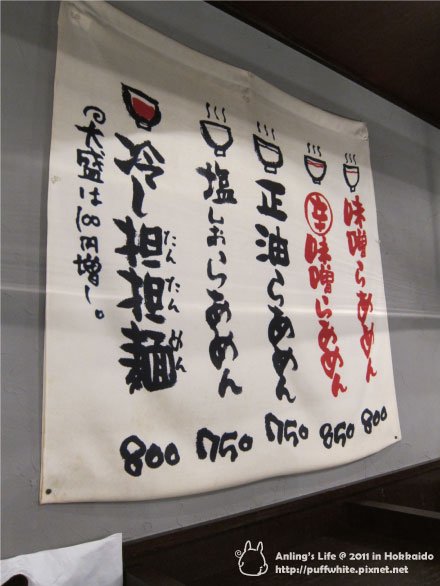 味噌らあめん 800
辛味噌らあめん 850
正油らあめん 750
塩しおらあめん 750
冷し担担麺たんたんめん 800
@大盛は100円増し。
Anling's Life @ 2011 in Hokkaido
http://puffwhite.pixnet.net